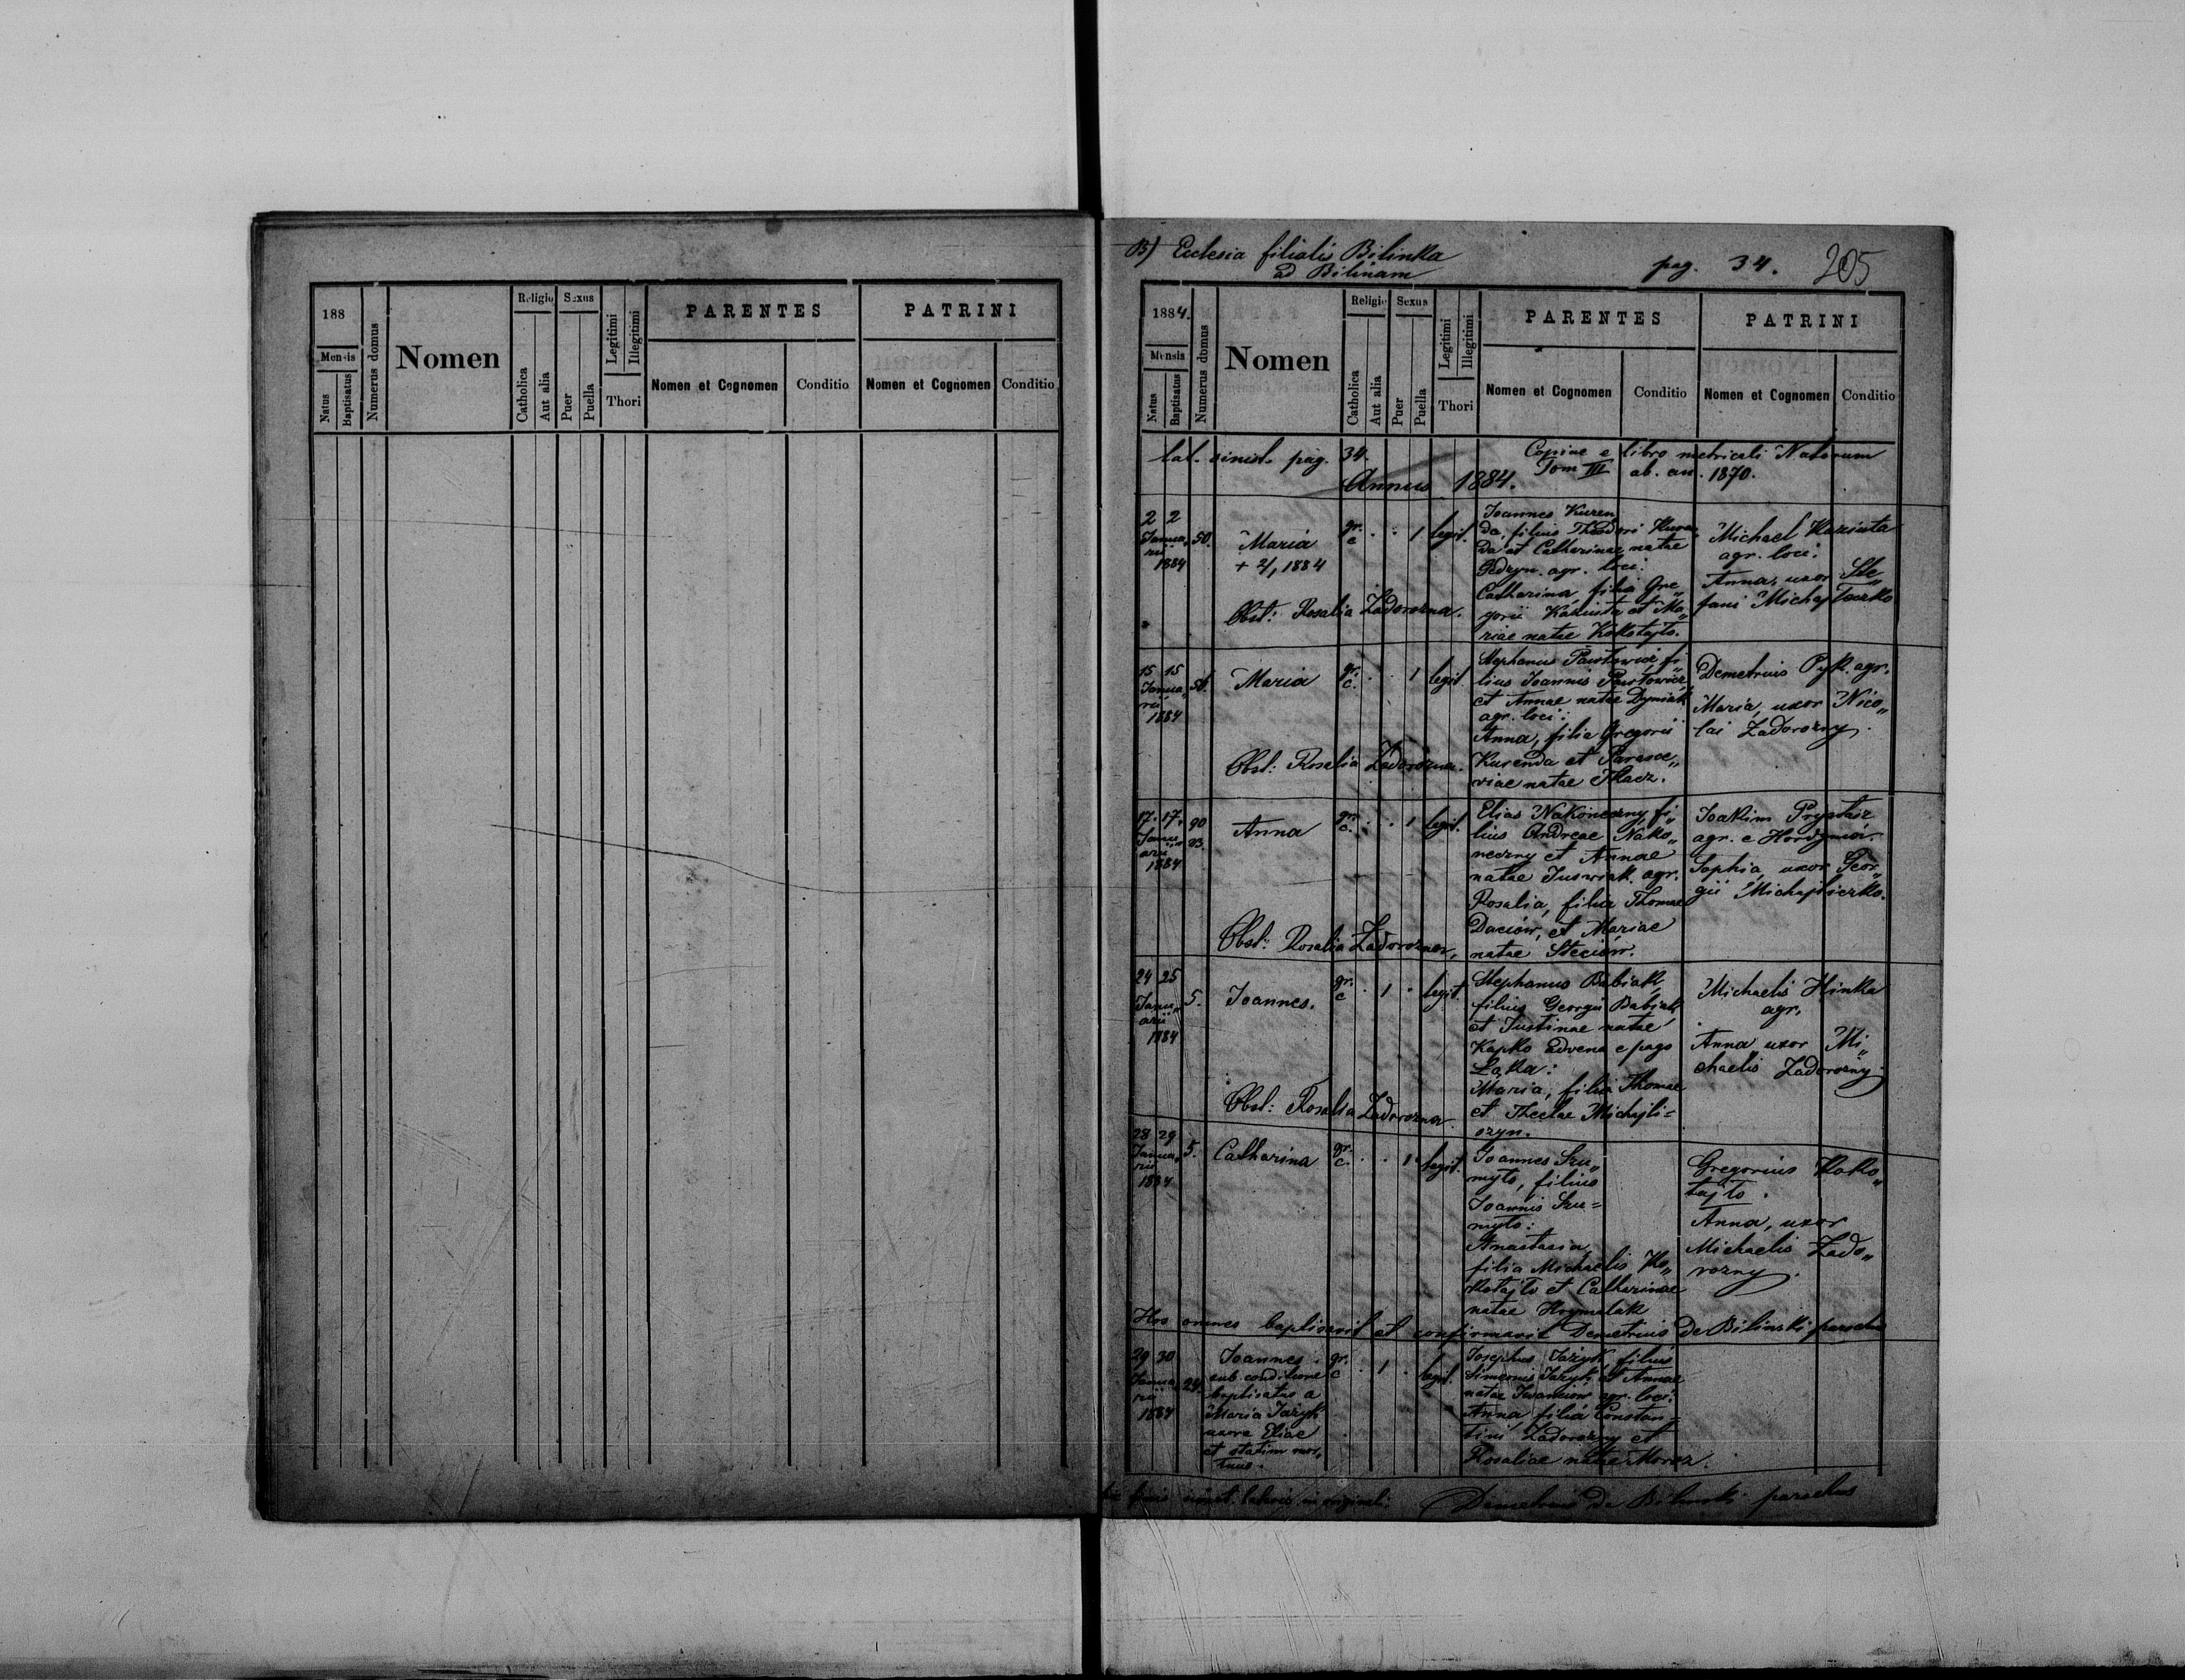 188
Mensis
Natus
Baptisatus
Numerus domus
Nomen
Religio
Catholica
Aut alia
Sexus
Puer
Puella
Legitimi
Illegitimi
Thori
PARENTES
Nomen et Cognomen
Conditio
PATRINI
Nomen et Cognomen
Conditio
B) Ecclesia filialis Bilinka
ad Bilinam
pag. 34.
205
1884.
Mensis
Natus
Baptisatus
Numerus domus
Nomen
Religio
Catholica
Aut alia
Sexus
Puer
Puella
Legitimi
Illegitimi
Thori
PARENTES
Nomen et Cognomen
Conditio
PATRINI
Nomen et Cognomen
Conditio
lat. sinist. pag. 34.
Annus 1884.
Copiae e libro metricali Natorum
Tom III ab. an. 1870.
2 2
Janua„
rii
1884
50.
Maria
+ 2/1 1884
gr.
c
1
legit.
Joannes Kuren
da, filius Theodori Kuren
da et Catharinae natae
agr. loci:
Catharina, filia Gre„
gorii Kaziuta et Ma„
riae natae Kokotajto.
Michael Kaziuta
agr. loci.
Anna, uxor Ste„
fani Michajloczko
Obst: Rosalia Zadorozna.
15 15
Janua„
rii
1884
56.
Maria
gr.
c.
1
legit.
Stephanus Pawtowicz fi„
lius Joannis Pawtowicz
et Annae natae Dymiak
agr. loci:
Anna, filia Gregorii
Kurenda et Parasce„
viae natae Tkacz.
Demetrius Pyk agr.
Maria, uxor Nico„
lai Zadorozny.
Obst: Rosalia Zadorozna.
17. 17.
Janu„
arii
1884
90
93.
Anna
gr.
c.
1
legit.
Elias Nakoneczny fi„
lius Andreae Nako„
neczny et Annae
natae Juswiak agr.
Rosalia, filia Thomae
Daciów, et Mariae
natae Steciów.
Joakim Prystasz
agr. e
Sophia, uxor Geor„
gii Michajliczko.
Obst: Rosalia Zadorozna.
24 25
Janu„
arii
1884
5.
Joannes.
gr.
c
1
legit.
Stephanus Babiak,
filius Georgii Babiak
et Justinae natae
Kapko advena e pago
Łąka:
Maria, filia Thomae
et Theclae Michajli=
czyn.
Michaelis Hinka
agr.
Anna uxor Mi„
chaelis Zadorozny
Obst: Rosalia Zadorozna.
28 29
Janua„
rii
1884
5.
Catharina
gr.
c.
1
legit.
Joannes Szu„
myto, filius
Joannis Szu=
myto:
Anastasia,
filia Michaelis Ko„
kotajto et Catharinae
natae Hrymalak
Gregorius Koko„
tajto.
Anna, uxor
Michaelis Zado„
rozny.
Hos omnes baptisavit et confirmavit Demetrius de Bilinski parochus
29 30
Janua„
rii
1884
24.
Joannes
sub conditione
baptisatus a
Maria Jazyk
uxore Eliae
et statim mor„
tuus.
gr.
c
1
legit.
Josephus Jazyk, filius
Simeonis Jazyk et Annae
natae Iwanciow agr. loci:
Anna filia Constan=
tini Zadorozny et
Rosaliae natae Moroz.
finis sinist. lateris in originali:
Demetrius de Bilinski parochus